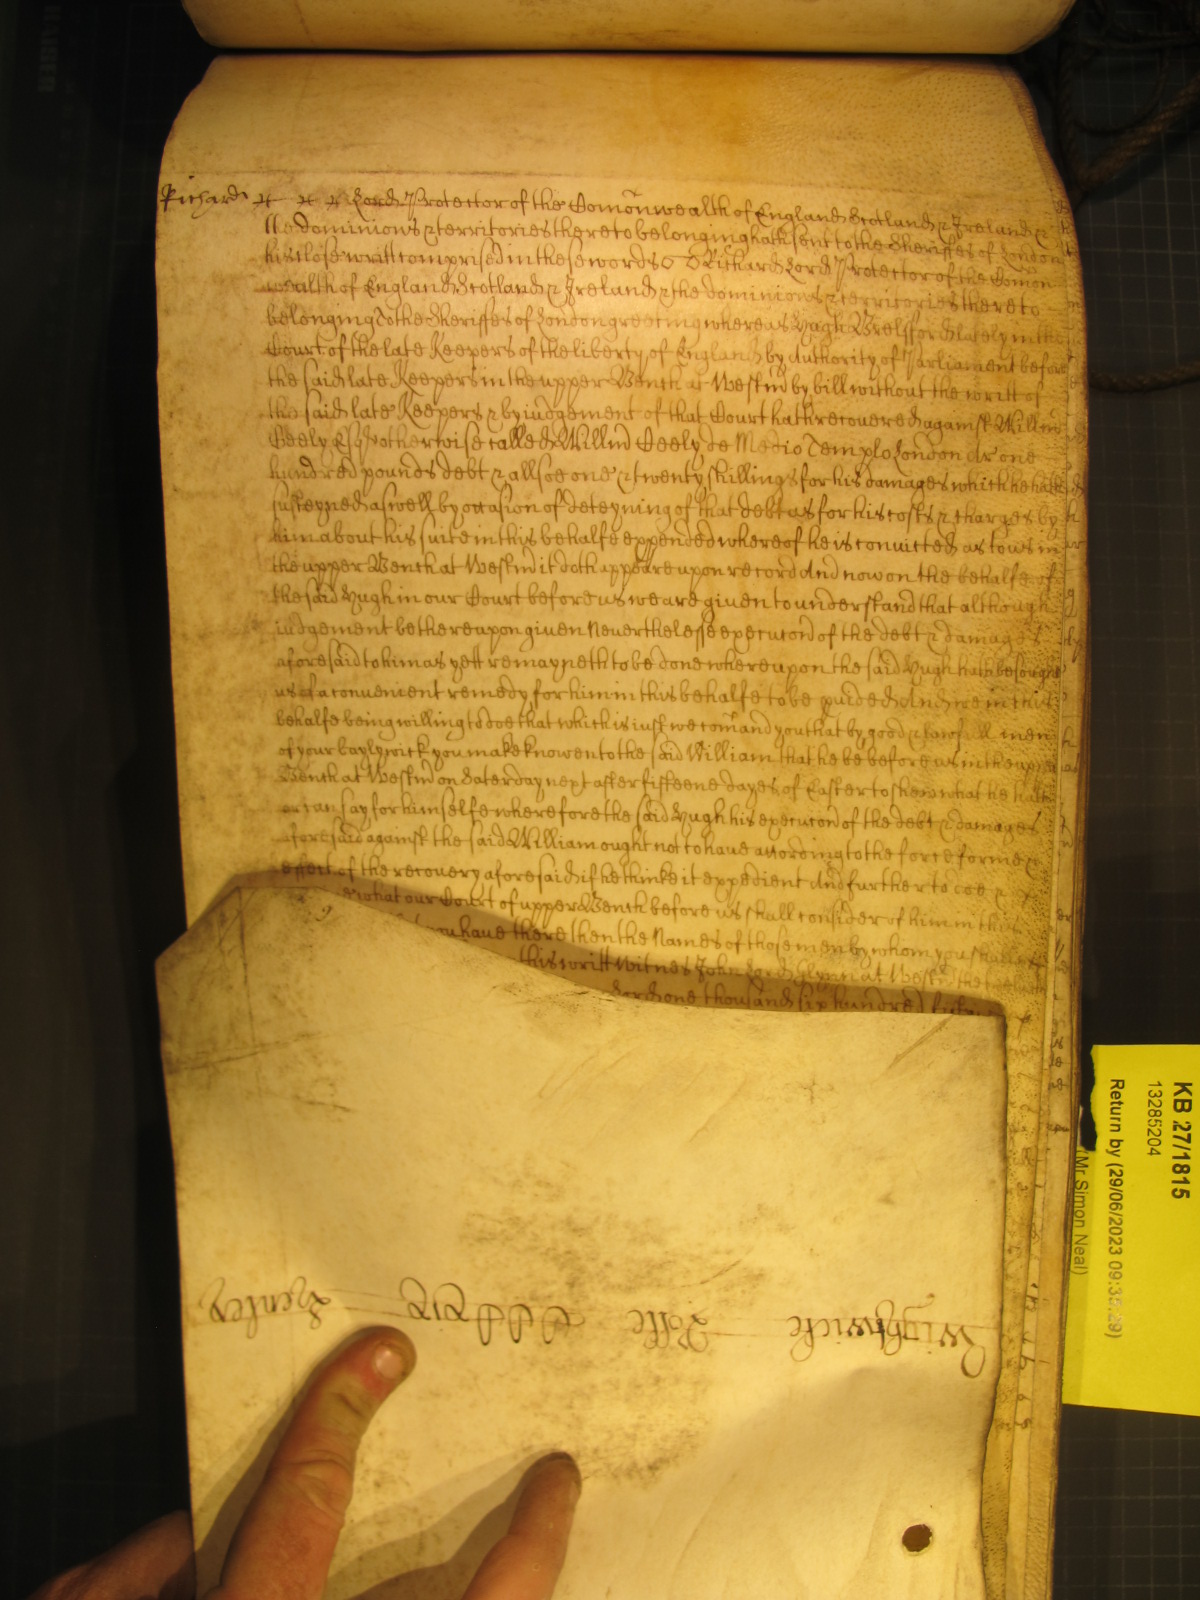 Richard &c &c &c Lord Protector of the Comonwealth of England Scotland & Ireland &
the dominions & territories thereto belonging hath sent to the Sheriffes of London
his close writt comprised in these words Richard Lord Protector of the Comon
wealth of England Scotland & Ireland & the dominions & territories thereto
belonging To the Sheriffes of London greeting whereas Hugh lately in the
Court of the late Keepers of the liberty of England by Authority of Parliament before
the said late Keepers in the upper Bench at Westm by bill without the writt of
the said late Keepers & by iudgement of that Court hath recovered against Willm
Ceely Esqr otherwise called Willm Ceely de Medio Templo London ar one
hundred pounds debt & allsoe one & twenty shillings for his damages which he hath
susteyned aswell by occasion of deteyning of that debt as for his costs & charges by
him about his suite in this behalfe expended whereof he is convicted as to us in
the upper Bench at Westm it doth appeare upon record And now on the behalfe of
the said Hugh in our Court before us we are given to understand that although
iudgement be thereupon given Neverthelesse execucon of the debt & damages
aforesaid to him as yett remayneth to be done whereupon the said Hugh hath besought
us of a convenient remedy for him in this behalfe to be And we in this
behalfe being willing to doe that which is iust we comand you that by good & lawfull men
of your baylywick you make knowen to the said William that he be before us in the upper
Bench at Westm on Saterday next after fifteene dayes of Easter to shew what he hath
or can say for himselfe wherefore the said Hugh his execucon of the debt & damages
aforesaid against the said William ought not to have according to the force forme &
effect of the recovery aforesaid if he thinke it expedient And further to doe &
what our Court of upper Bench before us shall consider of him in this
you have there then the Names of those men by whom you
this writt Witnes John Lord Glynn at Westm the
Lord one thousand six hundred fifty
Wightwicke Rolle Henley
KB 27/1815
13285204
Return by (29/06/2023 09:35:29)
(Mr Simon Neal)